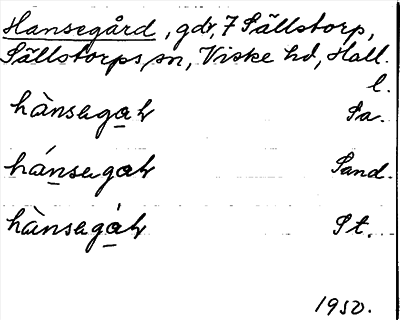 Hansegård, gdr, 7 Sällstorp,
Sällstorps sn, Viske hd, Hall.
l.
hànsegar Sa.
hánsegar Sand.
hànsegár St.
1950.